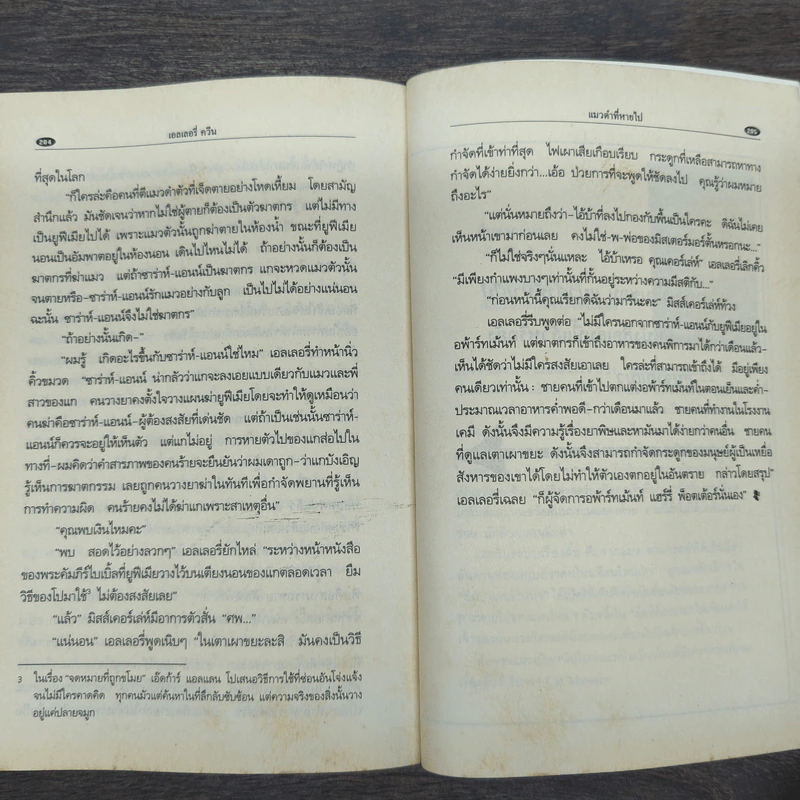 204
เอลเลอรี่ ควีน
ที่สุดในโลก
"ก็ใครล่ะคือคนที่ตีแมวดำตัวที่เจ็ดตายอย่างโหดเหี้ยม โดยสามัญ
สำนึกแล้ว มันชัดเจนว่าหากไม่ใช่ผู้ตายก็ต้องเป็นตัวฆาตกร แต่ไม่มีทาง
เป็นยูฟีเมียไปได้ เพราะแมวตัวนั้นถูกฆ่าตายในห้องน้ำ ขณะที่ยูฟีเมีย
นอนเป็นอัมพาตอยู่ในห้องนอน เดินไปไหนไม่ได้ ถ้าอย่างนั้นก็ต้องเป็น
ฆาตกรที่ฆ่าแมว แต่ถ้าซาร่าห์-แอนน์เป็นฆาตกร แกจะหวดแมวตัวนั้น
จนตายหรือ-ซาร่าห์-แอนน์รักแมวอย่างกับลูก เป็นไปไม่ได้อย่างแน่นอน
ฉะนั้น ซาร่าห์-แอนน์จึงไม่ใช่ฆาตกร"
"ถ้าอย่างนั้นเกิด-"
"ผมรู้ เกิดอะไรขึ้นกับซาร่าห์-แอนน์ใช่ไหม" เอลเลอรี่ทำหน้านิ่ว
คิ้วขมวด "ซาร่าห์-แอนน์ น่ากลัวว่าแกจะลงเอยแบบเดียวกับแมวและพี่
สาวของแก คนวางยาคงตั้งใจวางแผนฆ่ายูฟีเมียโดยจะทำให้ดูเหมือนว่า
คนฆ่าคือซาร่าห์-แอนน์-ผู้ต้องสงสัยที่เด่นชัด แต่ถ้าเป็นเช่นนั้นซาร่าห์-
แอนน์ก็ควรจะอยู่ให้เห็นตัว แต่แกไม่อยู่ การหายตัวไปของแกส่อไปใน
ทางที่-ผมคิดว่าคำสารภาพของคนร้ายจะยืนยันว่าผมเดาถูก-ว่าแกบังเอิญ
รู้เห็นการฆาตกรรม เลยถูกคนวางยาฆ่าในทันทีเพื่อกำจัดพยานที่รู้เห็น
การทำความผิด คนร้ายคงไม่ได้ฆ่าแกเพราะสาเหตุอื่น"
"คุณพบเงินไหมคะ"
"พบ สอดไว้อย่างลวกๆ" เอลเลอรี่ยักไหล่ "ระหว่างหน้าหนังสือ
ของพระคัมภีร์ไบเบิ้ลที่ยูฟีเมียวางไว้บนเตียงนอนของแกตลอดเวลา ยืม
วิธีของโปมาใช้3 ไม่ต้องสงสัยเลย"
"แล้ว" มิสส์เคอร์เล่ห์มีอาการตัวสั่น "ศพ..."
"แน่นอน" เอลเลอรี่พูดเนิบๆ "ในเตาเผาขยะละสิ มันคงเป็นวิธี
3 ในเรื่อง "จดหมายที่ถูกขโมย" เอ็ดก้าร์ แอลแลน โปเสนอวิธีการใช้ที่ซ่อนอันโจ่งแจ้ง
จนไม่มีใครคาดคิด ทุกคนมัวแต่ค้นหาในที่ลึกลับซับซ้อน แต่ความจริงของสิ่งนั้นวาง
อยู่แค่ปลายจมูก
แมวดำที่หายไป
205
กำจัดที่เข้าท่าที่สุด ไฟเผาเสียเกือบเรียบ กระดูกที่เหลือสามารถหาทาง
กำจัดได้ง่ายยิ่งกว่า...เอ้อ ป่วยการที่จะพูดให้ชัดลงไป คุณรู้ว่าผมหมาย
ถึงอะไร"
"แต่นั่นหมายถึงว่า-ไอ้บ้าที่ลงไปกองกับพื้นเป็นใครคะ ดิฉันไม่เคย
เห็นหน้าเขามาก่อนเลย คงไม่ใช่-พ-พ่อของมิสเตอร์มอร์ตั้นหรอกนะ..."
"ก็ไม่ใช่จริงๆนั่นแหละ ไอ้บ้าเหรอ คุณเคอร์เล่ห์" เอลเลอรี่เลิกคิ้ว
"มีเพียงกำแพงบางๆเท่านั้นที่กั้นอยู่ระหว่างความมีสติกับ..."
"ก่อนหน้านี้คุณเรียกดิฉันว่ามารีนะคะ" มิสส์เคอร์เล่ห์ท้วง
เอลเลอรี่รีบพูดต่อ "ไม่มีใครนอกจากซาร่าห์-แอนน์กับยูฟีเมียอยู่ใน
อพ้าร์ทเม้นท์ แต่ฆาตกรก็เข้าถึงอาหารของคนพิการมาได้กว่าเดือนแล้ว-
เห็นได้ชัดว่าไม่มีใครสงสัยเอาเลย ใครล่ะที่สามารถเข้าถึงได้ มีอยู่เพียง
คนเดียวเท่านั้น: ชายคนที่เข้าไปตกแต่งอพ้าร์ทเม้นท์ในตอนเย็นและค่ำ-
ประมาณเวลาอาหารค่ำพอดี-กว่าเดือนมาแล้ว ชายคนที่ทำงานในโรงงาน
เคมี ดังนั้นจึงมีความรู้เรื่องยาพิษและหามันมาได้ง่ายกว่าคนอื่น ชายคน
ที่ดูแลเตาเผาขยะ ดังนั้นจึงสามารถกำจัดกระดูกของมนุษย์ผู้เป็นเหยื่อ
สังหารของเขาได้โดยไม่ทำให้ตัวเองตกอยู่ในอันตราย กล่าวโดยสรุป"
เอลเลอรี่เฉลย "ก็ผู้จัดการอพ้าร์ทเม้นท์ แฮร์รี่ พ็อตเต้อร์นั่นเอง"